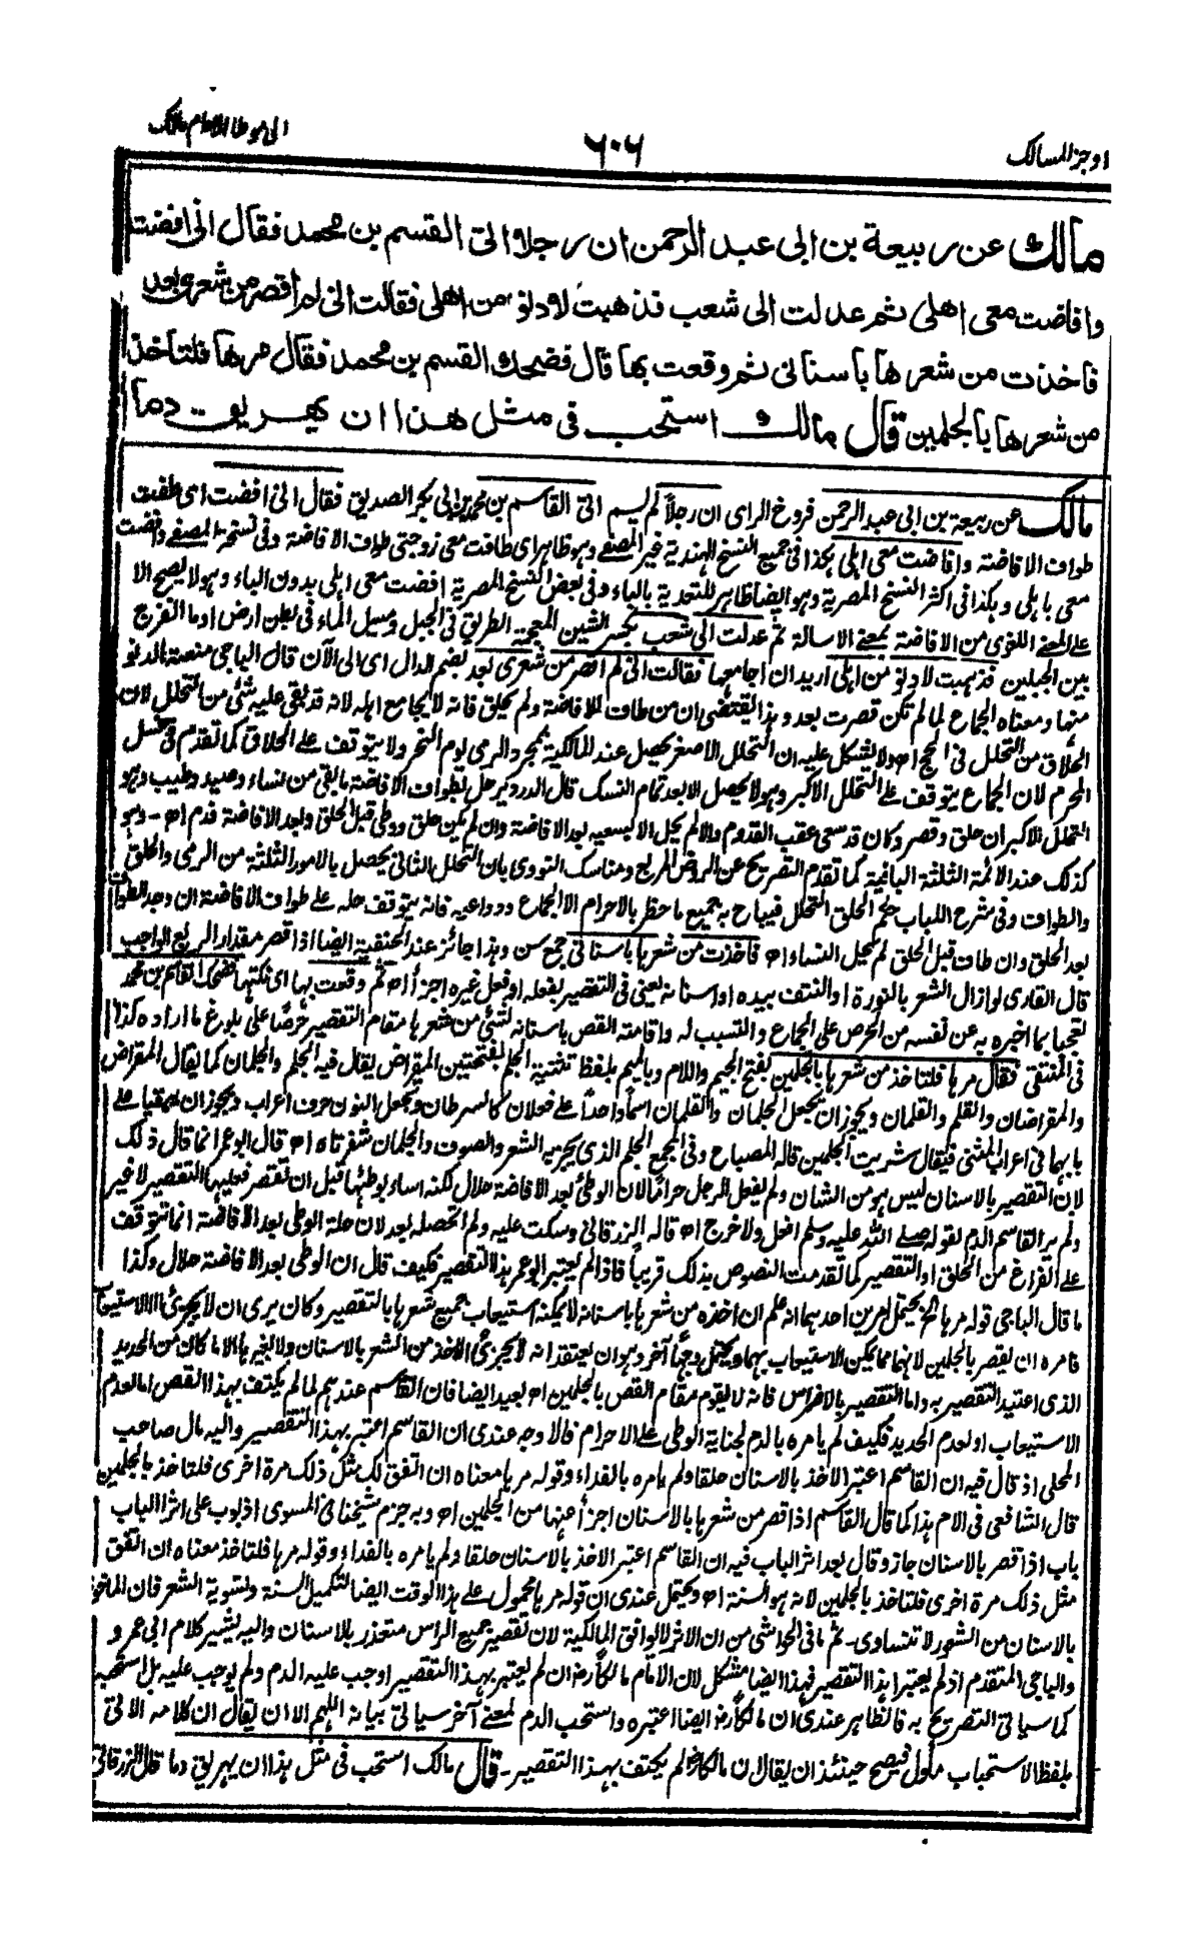 اوجز المسالك
٦٠٦
الى موطا الامام مالك
مالك عن ربيعة بن ابى عبد الرحمن ان رجلا اتى القسم بن محمد فقال انى افضت
وافاضت معى اهلى ثم عدلت الى شعب فذهبت لادنو من اهلى فقالت انى لم اقصر من شعرى بعد
فاخذت من شعرها باسنانى ثم وقعت بها قال فضحك القسم بن محمد فقال مرها فلتاخذ
من شعرها بالجلمين قال مالك استحب فى مثل هذا ان يهريق دما
مالك عن ربيعة بن ابى عبد الرحمن فروخ الراى ان رجلاً لم يسم اتى القاسم بن محمد بن ابى بكر الصديق فقال انى افضت اى طفت
طواف الافاضة وافاضت معى اهلى هكذا فى جميع النسخ الهندية غير المصفى وهو ظاهر اى طافت معى زوجتى طواف الافاضة وفى نسخة المصفى وافضت
معى باهلى وهكذا فى اكثر النسخ المصرية وهو ايضا ظاهر للتعدية بالباء وفى بعض النسخ المصرية افضت معى اهلى بدون الباء وهو لا يصح الا
على المعنى اللغوى من الافاضة بمعنى الاسالة ثم عدلت الى شعب بكسر الشين المعجمة الطريق فى الجبل ومسيل الماء فى بطن ارض او ما انفرج
بين الجبلين فذهبت لادنو من اهلى اريد ان اجامعها فقالت انى لم اقصر من شعرى بعد بضم الدال اى الى الآن قال الباجى منعته الدنو
منها ومعناه الجماع لما لم تكن قصرت بعد وهذا يقتضى ان من طاف للافاضة ولم يحلق فانه لا يجامع اهله لانه قد بقى عليه شئ من التحلل لان
الحلاق من التحلل فى الحج اه ولا يشكل عليه ان التحلل الاصغر يحصل عند المالكية بمجرد الرمى يوم النحر ولا يتوقف على الحلاق كما تقدم فى غسل
المحرم لان الجماع يتوقف على التحلل الاكبر وهو لا يحصل الا بعد تمام النسك قال الدردير حل بطواف الافاضة ما بقى من نساء وصيد وطيب وهو
التحلل الاكبر ان حلق وقصر وكان قد سعى عقب القدوم والا لم يحل الا بسعيه بعد الافاضة وان لم يكن حلق ووطى قبل الحلق وبعد الافاضة فدم اه - وهو
كذلك عند الائمة الثلثة الباقية كما تقدم التصريح عن الروض المربع ومناسك النووى بان التحلل الثانى يحصل بالامور الثلثة من الرمى والحلق
والطواف وفى شرح اللباب حكم الحلق التحلل فيباح به جميع ما حظر بالاحرام الا الجماع ودواعيه فانه يتوقف حله على طواف الافاضة ان وجد الطواف
بعد الحلق وان طاف قبل الحلق لم يحل النساء اه فاخذت من شعرها باسنانى جمع سن وهذا جائز عند الحنفية ايضا اذا قصر مقدار الربع الواجب
قال القارى لو ازال الشعر بالنورة او النتف بيده او اسنانه يعنى فى التقصير بفعله او فعل غيره اجزأ اه ثم وقعت بها اى نكحتها فضحك القاسم بن محمد
تعجبا بما اخبره به عن نفسه من الحرص على الجماع والتسبب له واقامة القص باسنانه لشئ من شعرها مقام التقصير حرصًا على بلوغ ما اراده كذا
فى المنتقى فقال مرها فلتاخذ من شعرها بالجلمين بفتح الجيم واللام وبالميم بلفظ تثنية الجلم بفتحتين المقراض يقال فيه الجلم والجلمان كما يقال المقراض
والمقراضان والقلم والقلمان ويجوز ان يجعل الجلمان والقلمان اسمًا واحدًا على فعلان كالسرطان ويجعل النون حرف اعراب ويجوز ان يبقيا على
بابهما فى اعراب المثنى فيقال شريت الجلمين قاله المصباح وفى المجمع الجلم الذى يجز به الشعر والصوف والجلمان شفرتاه اه قال ابو عمر انما قال ذلك
لان التقصير بالاسنان ليس هو من الشان ولم يفعل الرجل حرامًا لان الوطى بعد الافاضة حلال لكنه اساء بوطئها قبل ان تقصر فعليها التقصير لا غير
ولم ير القاسم الدم لقوله صلى الله عليه وسلم افعل ولا حرج اه قاله الزرقانى وسكت عليه ولم اتحصله بعد لان حلة الوطى بعد الافاضة انما تتوقف
على الفراغ من الحلق او التقصير كما تقدمت النصوص بذلك قريباً فاذا لم يعتبر ابو عمر هذا التقصير فكيف قال ان الوطى بعد الافاضة حلال وكذا
ما قال الباجى قوله مرها الخ يحتمل امرين احدهما انه علم ان اخذه من شعرها باسنانه لا يمكنه استيعاب جميع شعرها بالتقصير وكان يرى ان لا يجزئ الا الاستيعاب
فامره ان يقصر بالجلمين لانهما مما يمكن الاستيعاب بهما ويحتمل وجهًا آخر وهو ان يعتقد انه لا يجزئ الاخذ من الشعر بالاسنان ولا بغيرها الا ما كان من الحديد
الذى اعتيد التقصير به واما التقصير بالاضراس فانه لا يقوم مقام القص بالجلمين اه بعيد ايضا فان القاسم عندهم لما لم يكتف بهذا القص اما لعدم
الاستيعاب او لعدم الحديد فكيف لم يامره بالدم لجناية الوطى على الاحرام فالاوجه عندى ان القاسم اعتبر بهذا التقصير واليه مال صاحب
المحلى اذ قال فيه ان القاسم اعتبر الاخذ بالاسنان حلقا ولم يامره بالفداء وقوله مرها معناه ان اتفق لك مثل ذلك مرة اخرى فلتاخذ بالجلمين
قال الشافعى فى الام هذا كما قال القاسم اذا قصر من شعرها بالاسنان اجزأ عنها من الجلمين اه وبه جزم شيخنا فى المسوى اذ بوب على اثر الباب
باب اذا قصر بالاسنان جاز وقال بعد اثر الباب فيه ان القاسم اعتبر الاخذ بالاسنان حلقا ولم يامره بالفداء وقوله مرها فلتاخذ معناه ان اتفق
مثل ذلك مرة اخرى فلتاخذ بالجلمين لانه هو السنة اه ويحتمل عندى ان قوله مرها محمول على هذا الوقت ايضا لتكميل السنة ولتسوية الشعر فان الماخوذ
بالاسنان من الشعور لا تتساوى - ثم ما فى الحواشى من ان الاثر لا يوافق المالكية لان تقصير جميع الراس متعذر بالاسنان واليه يشير كلام ابى عمر و
والباجى المتقدم اذ لم يعتبرا هذا التقصير فهذا ايضا مشكل لان الامام مالكاً رض ان لم يعتبر بهذا التقصير اوجب عليه الدم ولم يوجب عليه بل استحبه
كما سياتى التصريح به فالظاهر عندى ان مالكاً رض ايضا اعتبره واستحب الدم لمعنى آخر سياتى بيانه اللهم الا ان يقال ان كلامه الاتى
بلفظ الاستحباب مأول فيصح حينئذ ان يقال ان مالكا رض لم يكتف بهذا التقصير - قال مالك استحب فى مثل هذا ان يهريق دما قال الزرقانى